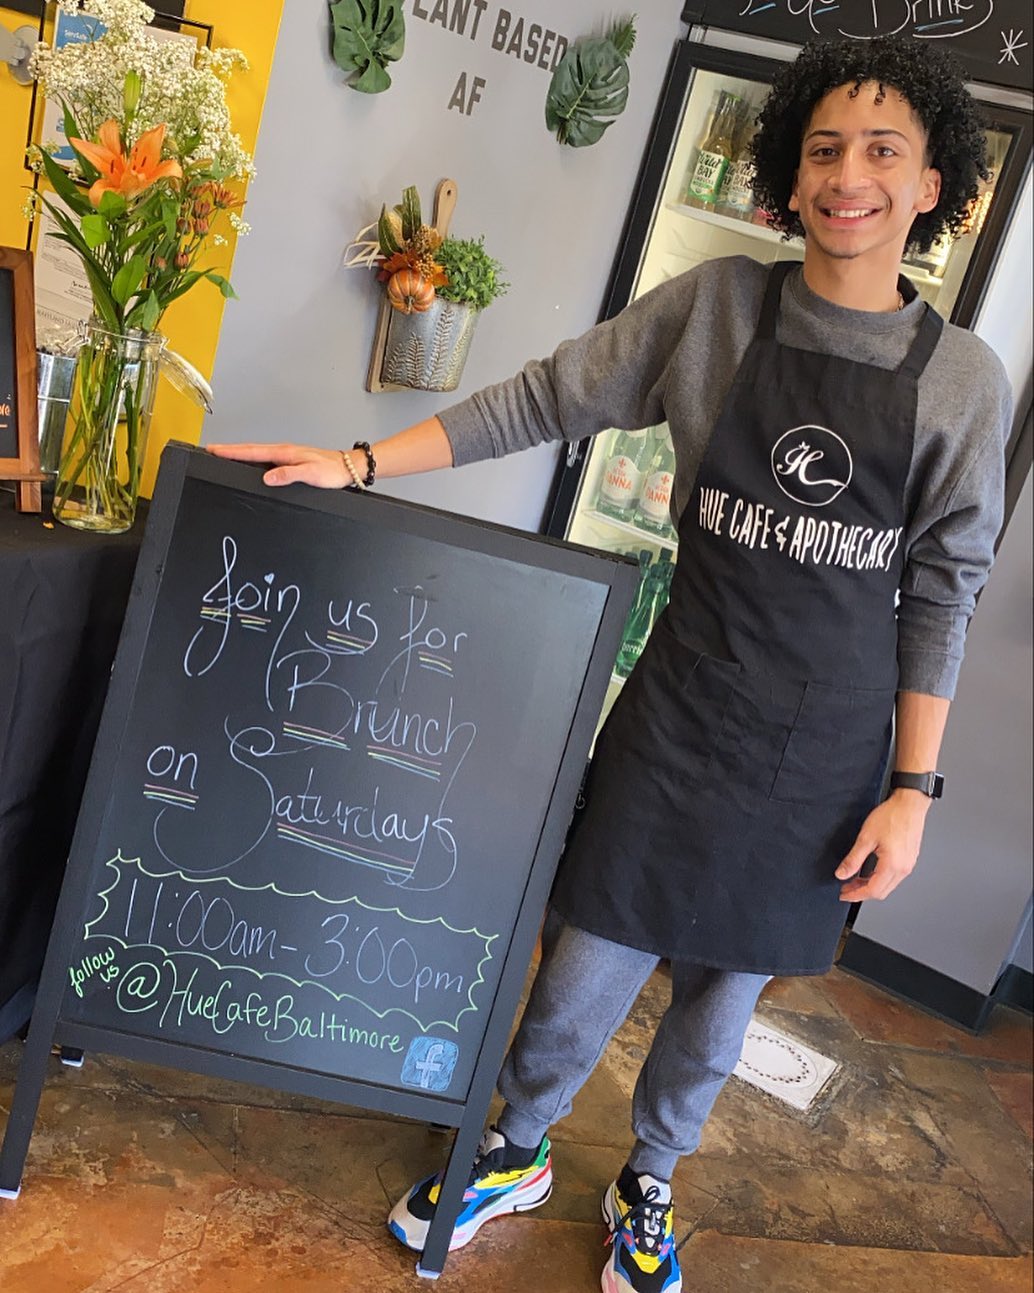 PLANT BASED
AF
Drink
H
HUE CAFE & APOTHECARY
Join us for
Brunch
on Saturdays
11:00am - 3:00pm
follow us @HueCafeBaltimore
f
PANNA
PANNA